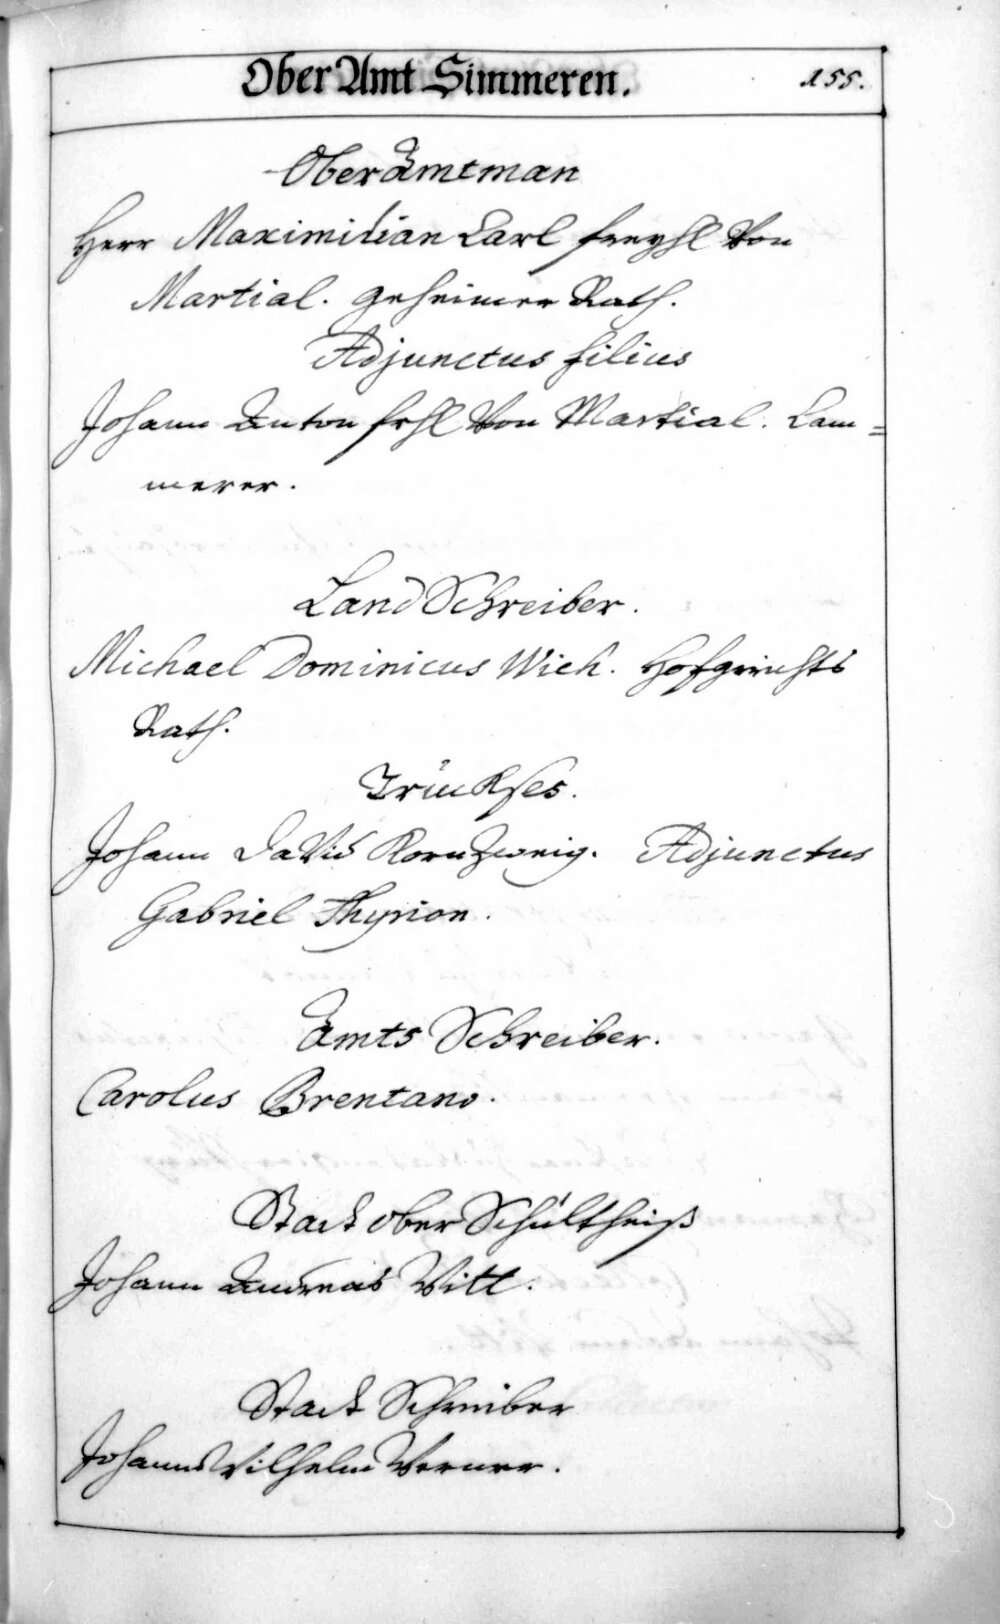 Ober Amt Simmeren. 155.
Ober Amtman
Herr Maximilian Carl freyhl Von
Martial. geheimer Rath.
Adjunctus filius
Johann Anton frhl Von Martial. Cam=
merer.
Land Schreiber.
Michael Dominicus Wich. Hofgerichts
Rath.
Trückses.
Johann David Kornzweig. Adjunctus
Gabriel Thyrion.
Amts Schreiber.
Carolus Brentano.
Stadt ober Schültheiß
Johann Andreas Witt.
Stadt Schreiber
Johann Wilhelm Werner.